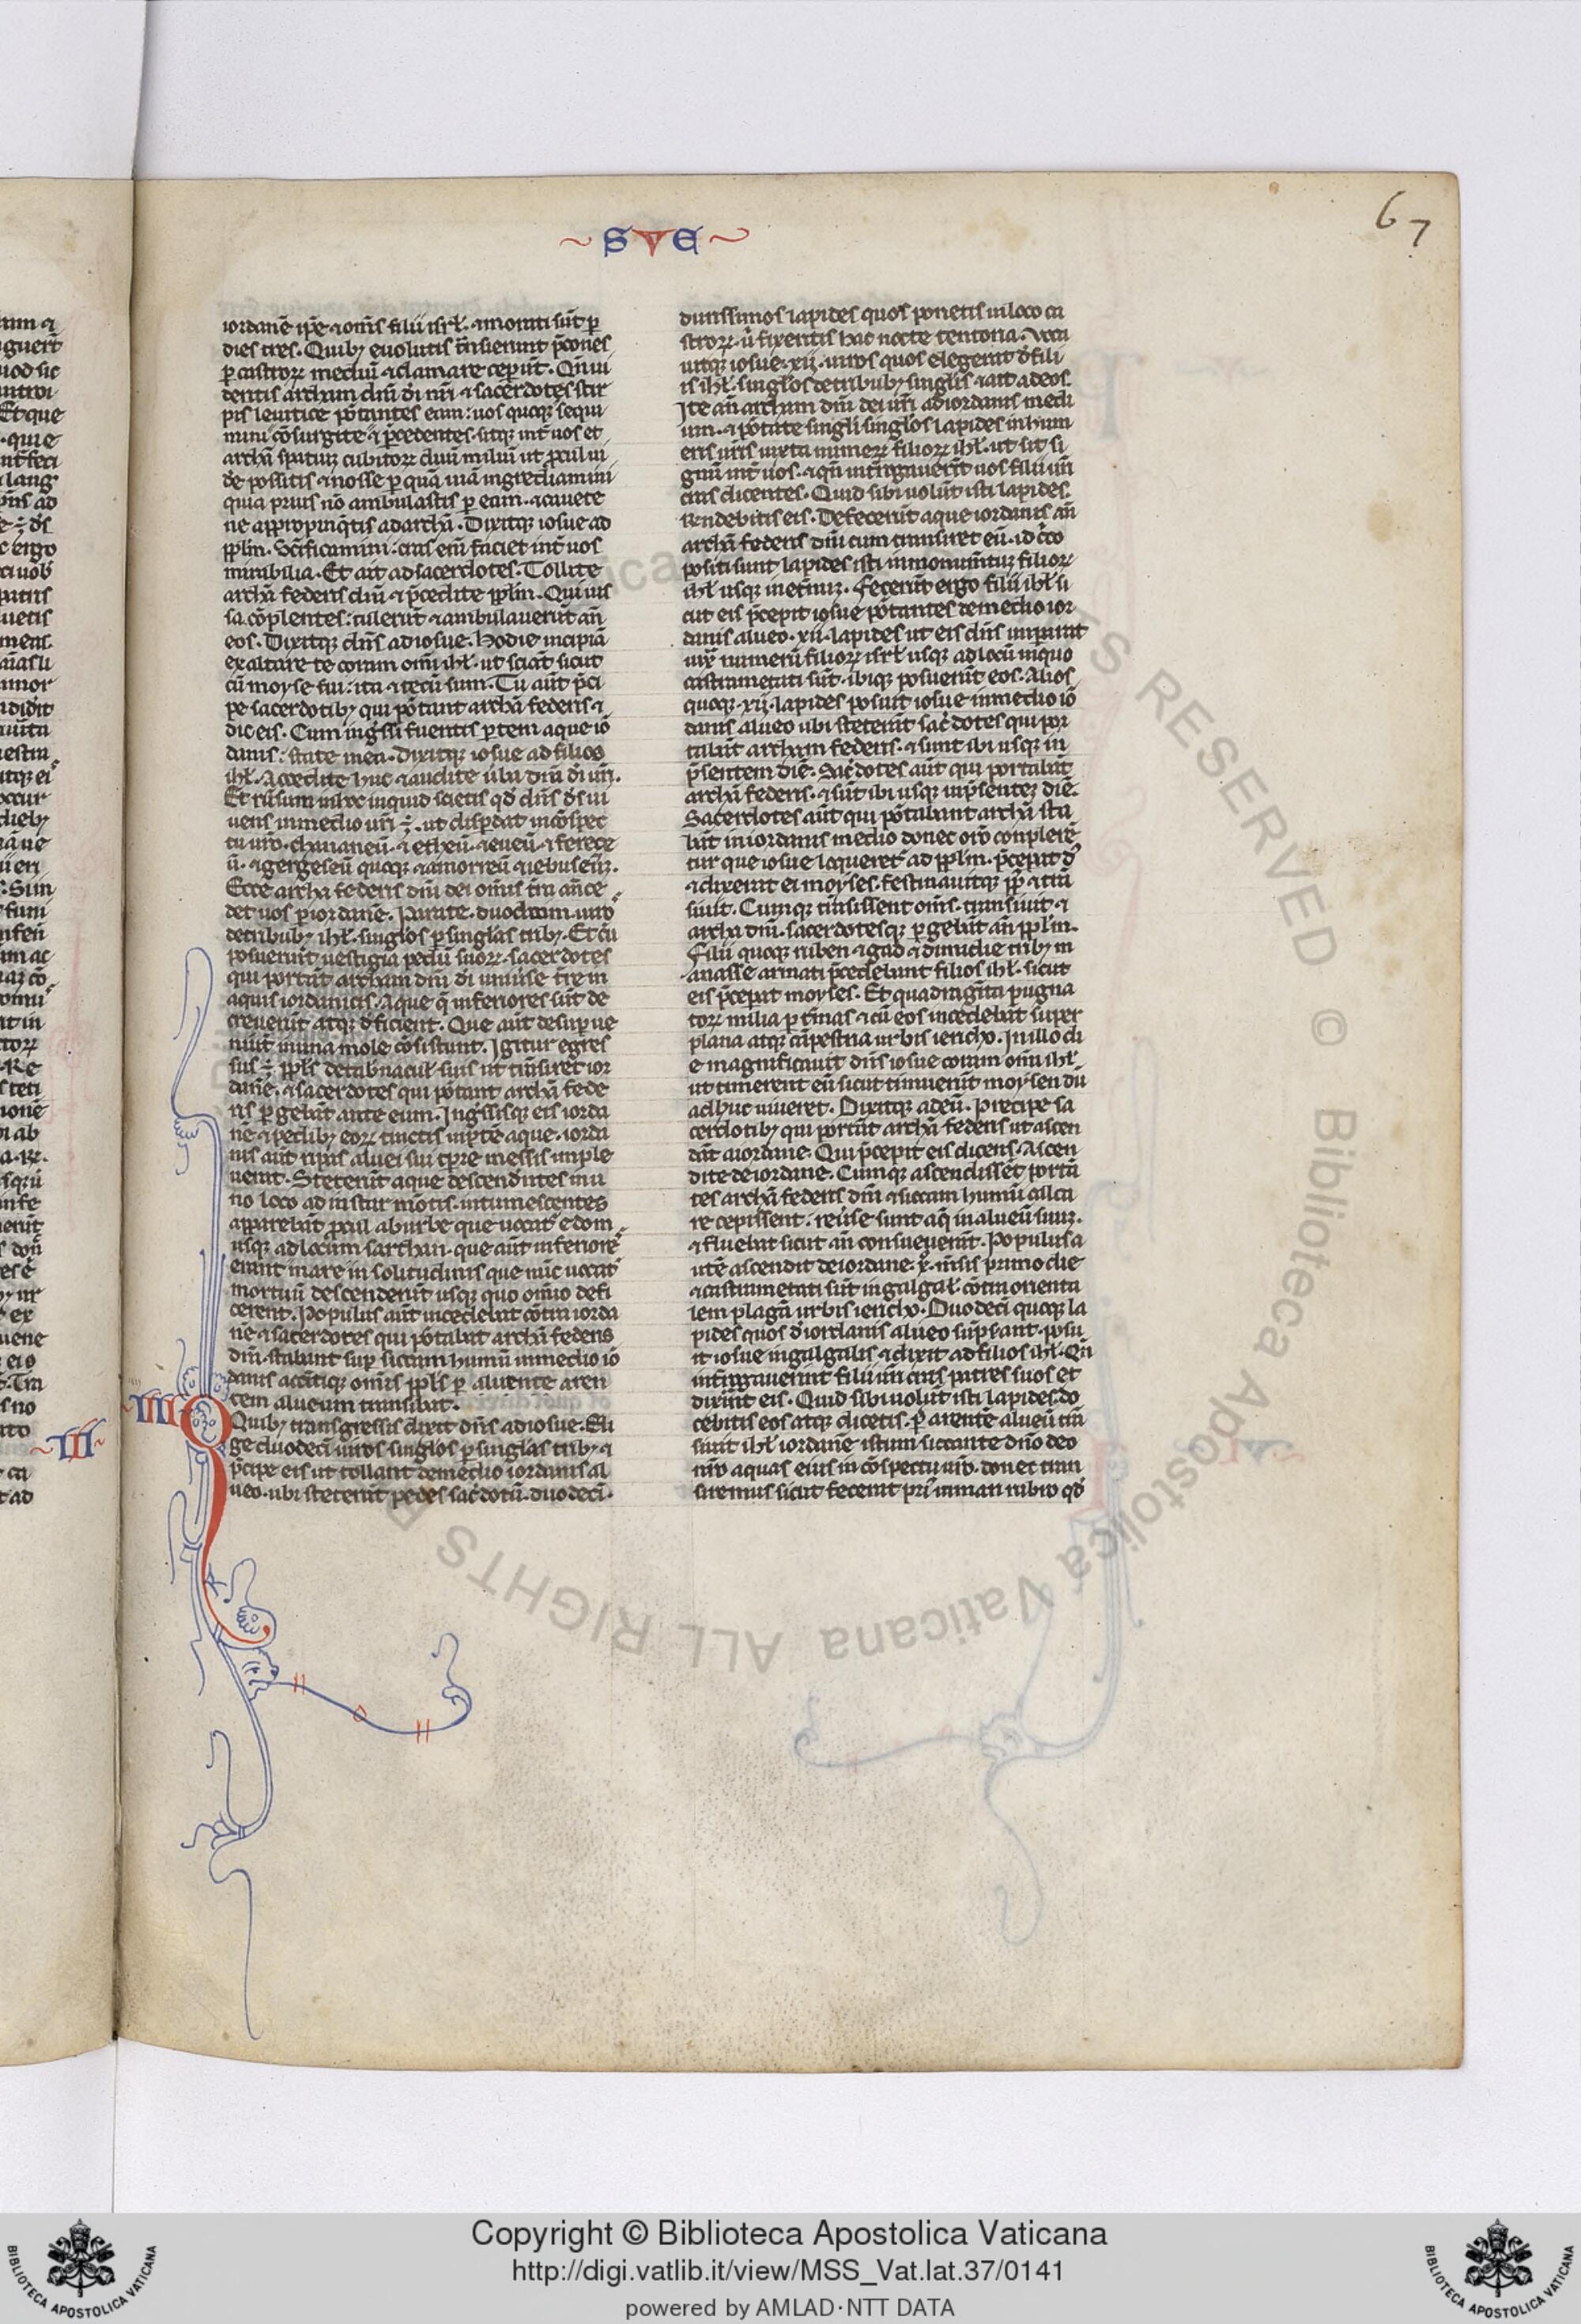 SUE
67
iordanē ip̄e ⁊ om̄s filii isrł. ⁊ morati sūt p̱
dies tres. Quibꝫ euolutis t̃nsierunt p̃cones
p̱ castroꝝ mediū ⁊ clamare cep̱ūt. Qñ ui
deritis archam dñi di nr̄i ⁊ sacerdotes stir
pis leuitice po̱tantes eam: uos quoqꝫ sequi
mini cōsurgite ⁊ p̃cedentes. sitqꝫ int̃ uos et
archā spatiuꝫ cubitoꝝ duū miliū ut ꝓcul ui
de possitis ⁊ nosse p̱ quā uiā ingrediamini
quia prius nō ambulastis p̱ eam. ⁊ cauete
ne appropinq̃tis ad archā. Dixitqꝫ iosue ad
ppl̄m. Sc̄ificamini: cras eni faciet int̃ uos
mirabilia. Et ait ad sacerdotes. Tollite
archā federis dñi ⁊ p̃cedite ppl̄m. Qui ius
sa cōplentes: tulerūt ⁊ ambulauerūt añ
eos. Dixitqꝫ dñs ad iosue. Hodie incipiā
exaltare te coram omī ihł. ut sciāt sicut
cū moyse fui: ita ⁊ tecū sum. Tu aūt p̃ci
pe sacerdotibꝫ qui po̱tant archā federis ⁊
dic eis. Cum ing̃ssi fueritis p̱tem aque io
danis: state in ea. Dixitqꝫ iosue ad filios
ihł. Accedite huc ⁊ audite ūba dñi di ur̄i.
Et rūsum in hoc inquid scietis qd̄ dñs ds ui
uens in medio ur̄i ÷. ut disp̱dat in cōspec
tu uro. chananeū. ⁊ etheū. ⁊ eueū ⁊ fereçe
ū. ⁊ gergeseū quoqꝫ ⁊ amorreū ⁊ iebuseūꝫ.
Ecce archa federis dñi dei om̄is t̃ra añce
det uos p̱ iordanē. Parate. duodecim uiro
de tribubꝫ ihł. singlos p̱ singlas tribꝫ. Et cū
posuerint uestigia pedū suoꝝ. sacerdotes
qui portāt archam dñi di uniūse t̃re in
aquis iordanicis. Aque q̃ inferiores sūt de
creuerit atqꝫ deficient. Que aūt desup̱ ue
niūt in una mole cōsistunt. Igitur egres
sus ÷ ppl̄s de tabnacul suis ut t̃nsiret ior
danē. ⁊ sacerdotes qui po̱tant archā fede
ris p̱gebāt ante eum. Ing̃ssisqꝫ eis iorda
nē ⁊ pedibꝫ eoꝝ tinctis in p̱te aque. iorda
nis aūt ripas aluei sui tp̱re messis imple
uerat. Steterūt aque descendētes in u
no loco ad instar mōtis. intumescentes
apparebāt ꝓcul ab urbe que uocat̃ edom
usqꝫ ad locum sarthan. que aūt inferiore
erant mare in solitudinis que nūc uocat̃
mortuū descenderūt usqꝫ quo om̄io defi
cerent. Populus aūt incedebat cōtra iorda
nē ⁊ sacerdotes qui po̱tabāt archā federis
dñi. stabant sup̱ siccam humū in medio io
danis accītiqꝫ om̄is ppl̄s p̱ aluente aren
tem alueum transibat.
IIII
Quibꝫ transgressis dixit dñs ad iosue. Eli
ge duodecī uiros singlos p̱ singlas tribꝫ ⁊
p̃cipe eis ut tollant de medio iordanis al
ueo. ubi steterūt pedes sac̃dotū. duodecī.
durissimos lapides quos ponetis in loco ca
stroꝝ. ū fixeritis hac nocte tentoria. Voca
uitqꝫ iosue. xij. uiros quos elegerat d̄ fili
is ihł. singlos de tribubꝫ singlis ⁊ ait ad eos.
Ite añ archam dñi dei ur̄i ad iordanis medi
um. ⁊ po̱tate singli singlos lapides in hum
eris ur̄is iuxta numerꝝ filioꝝ ihł. ut sit si
gnū int̃ uos. ⁊ qñ int̃rogauerīt uos filii ur̄i
cras dicentes. Quid sibi uolūt isti lapides.
Rendebitis eis. Defecerūt aque iordanis añ
archā federis dñi cum transiret eū. idc̃co
positi sunt lapides isti in monum̄tuꝫ filioꝝ
ihł usqꝫ in et̃nuꝫ. Fecerūt ergo filii ihł si
cut eis p̃cepit iosue po̱tantes de medio ior
danis alueo. xij. lapides ut eis dñs imparat
iuxͣ numerū filioꝝ isrł usqꝫ ad locū in quo
castrametati sūt. ibiqꝫ posuerūt eos. Alios
quoqꝫ. xij. lapides posuit iosue in medio io
danis alueo ubi steterūt sac̃dotes qui por
tabāt archam federis. ⁊ sunt ibi usqꝫ in
p̃sentem diē. Sac̃dotes aūt qui portabāt
archā federis. ⁊ sūt ibi usqꝫ in p̃senteꝫ diē.
Sacerdotes aūt qui po̱tabant archā sta
bāt in iordanis medio donec om̄o conplerē
tur que iosue loqueret̃ ad ppl̄m. p̃cepat d̄
⁊ dixerat ei moyses. festinauitqꝫ pp̄ ⁊ t̃n
siuit. Cumqꝫ t̃nsissent om̄s. transiuit ⁊
archa dñi. sacerdotesqꝫ p̱gebāt añ ppl̄m.
Filii quoqꝫ ruben ⁊ gad ⁊ dimidie tribꝫ m
anasse armati p̃cedebant filios ihł. sicut
eis p̃cepat moyses. Et quadragīta pugna
toꝝ milia p̱ t̃mas ⁊ cū eos incedebāt super
plana atqꝫ cāpestria urbis iericho. In illo di
e magnificauit dñs iosue coram omī ihł.
ut timerent eū sicut timuerūt moysen dū
adhuc uiueret. Dixitqꝫ ad eū. Precipe sa
cerdotibꝫ qui portāt archā federis ut ascen
dāt a iordane. Qui p̃cepit eis dicens. Ascen
dite de iordane. Cumqꝫ ascendissēt portā
tes archā federis dñi ⁊ siccam humū calca
re cepissent: reūse sunt aq̃ in alueū suuꝫ.
⁊ fluebāt sicut añ consueuerāt. Populus a
utē ascendit de iordane. x̊. m̄sis primo die
⁊ castrametati sūt in galgal. cōtra orienta
lem plagā urbis iericho. Duodecī quoqꝫ la
pides quos d̄ iordanis alueo sūpserant. posu
it iosue in galgalis ⁊ dixit ad filios ihł. Qñ
int̃rogauerint filii ur̄i cras patres suos et
dixerīt eis. Quid sibi uolūt isti lapides. do
cebitis eos atqꝫ dicetis. p̱ arentē alueū t̃n
siuit ihł iordanē istum siccante dño deo
nr̄o aquas eius in cōspectu uro. donec tran
siremus sicut fecerat pri in mari rubro qd̄
III
Copyright © Biblioteca Apostolica Vaticana
http://digi.vatlib.it/view/MSS_Vat.lat.37/0141
powered by AMLAD·NTT DATA
BIBLIOTECA APOSTOLICA VATICANA
BIBLIOTECA APOSTOLICA VATICANA
© Biblioteca Apostolica Vaticana ALL RIGHTS RESERVED